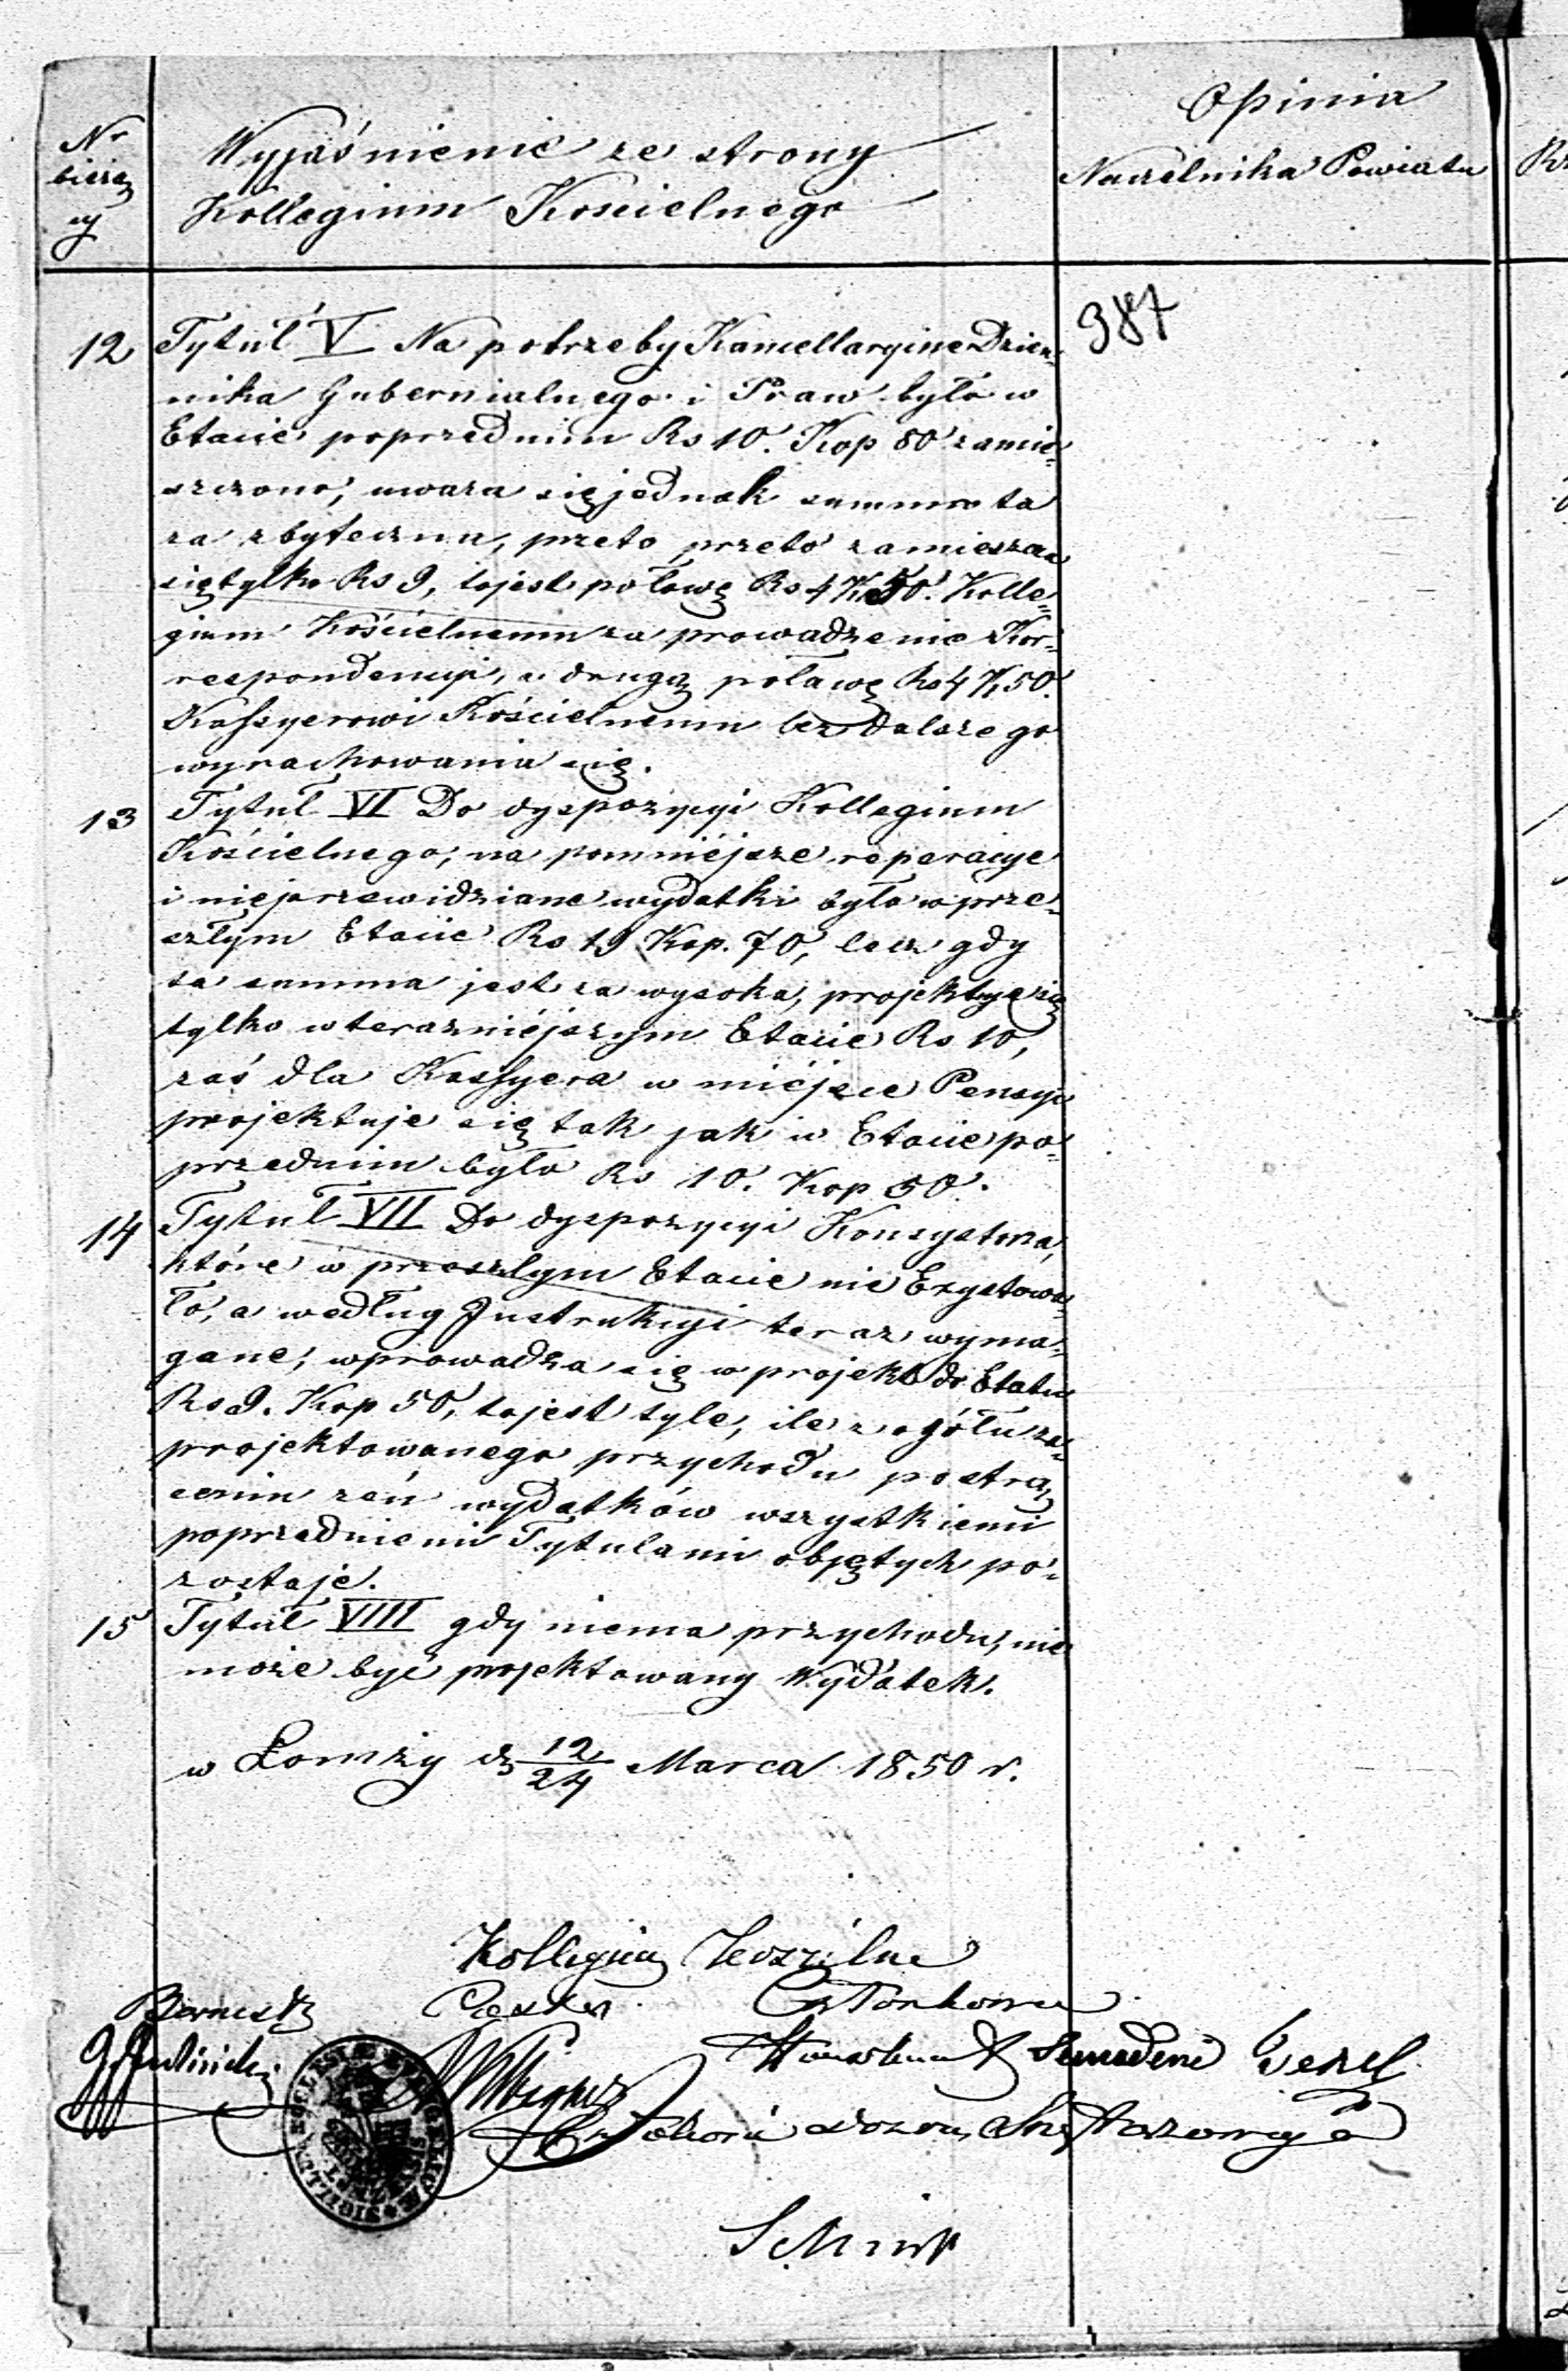 Nr
bieżą
cy
Wyjaśnienie ze strony
Kollegium Kościelnego
Opinia
Naczelnika Powiatu
387
12 Tytuł V Na potrzeby Kancellaryine Dzien=
nika Gubernialnego i Praw było w
Etacie poprzednim Rs 10. Kop 80 zamie=
szczono, uwaza się jednak summa ta
za zbyteczna, przeto przeto zamieszcza
się tylko Rs 9, to jest połowę Rs 4 K 50. Kolle=
gium Kościelnemu za prowadzenie Kor=
respondencyi, a drugą połowę Rs 4 K 50.
Kassyerowi Kościelnemu bez dalszego
wyrachowania się.
13 Tytuł VI Do dyspozycyi Kollegium
Kościelnego, na pomniéjsze reperacye
i nieprzewidziane wydatki było w prze=
szłym Etacie Rs 19 Kop. 70, lecz gdy
ta summa jest za wysoka, projektuje się
tylko w terazniéjszym Etacie Rs 10,
zaś dla Kassyera w miéjsce Pensyi
projektuje się tak jak w Etacie po=
przednim było Rs 10. Kop 50.
14 Tytuł VII Do dyspozycyi Konsystorza,
które w przeszłym Etacie nie Exystowa=
ło, a według Instrukcyi teraz wyma=
gane, wprowadza się w projekt do Etatu
Rs 9. Kop 50, to jest tyle, ile z ogółu za=
projektowanego przychodu po strą
ceniu zeń wydatków wszystkiemi
poprzedniemi Tytułami objętych po=
zostaje.
15 Tytuł VIII gdy niema przychodu, nie
może być projektowany Wydatek.
w Łomży d 12/24 Marca 1850 r.
Kollegium
Członkowie